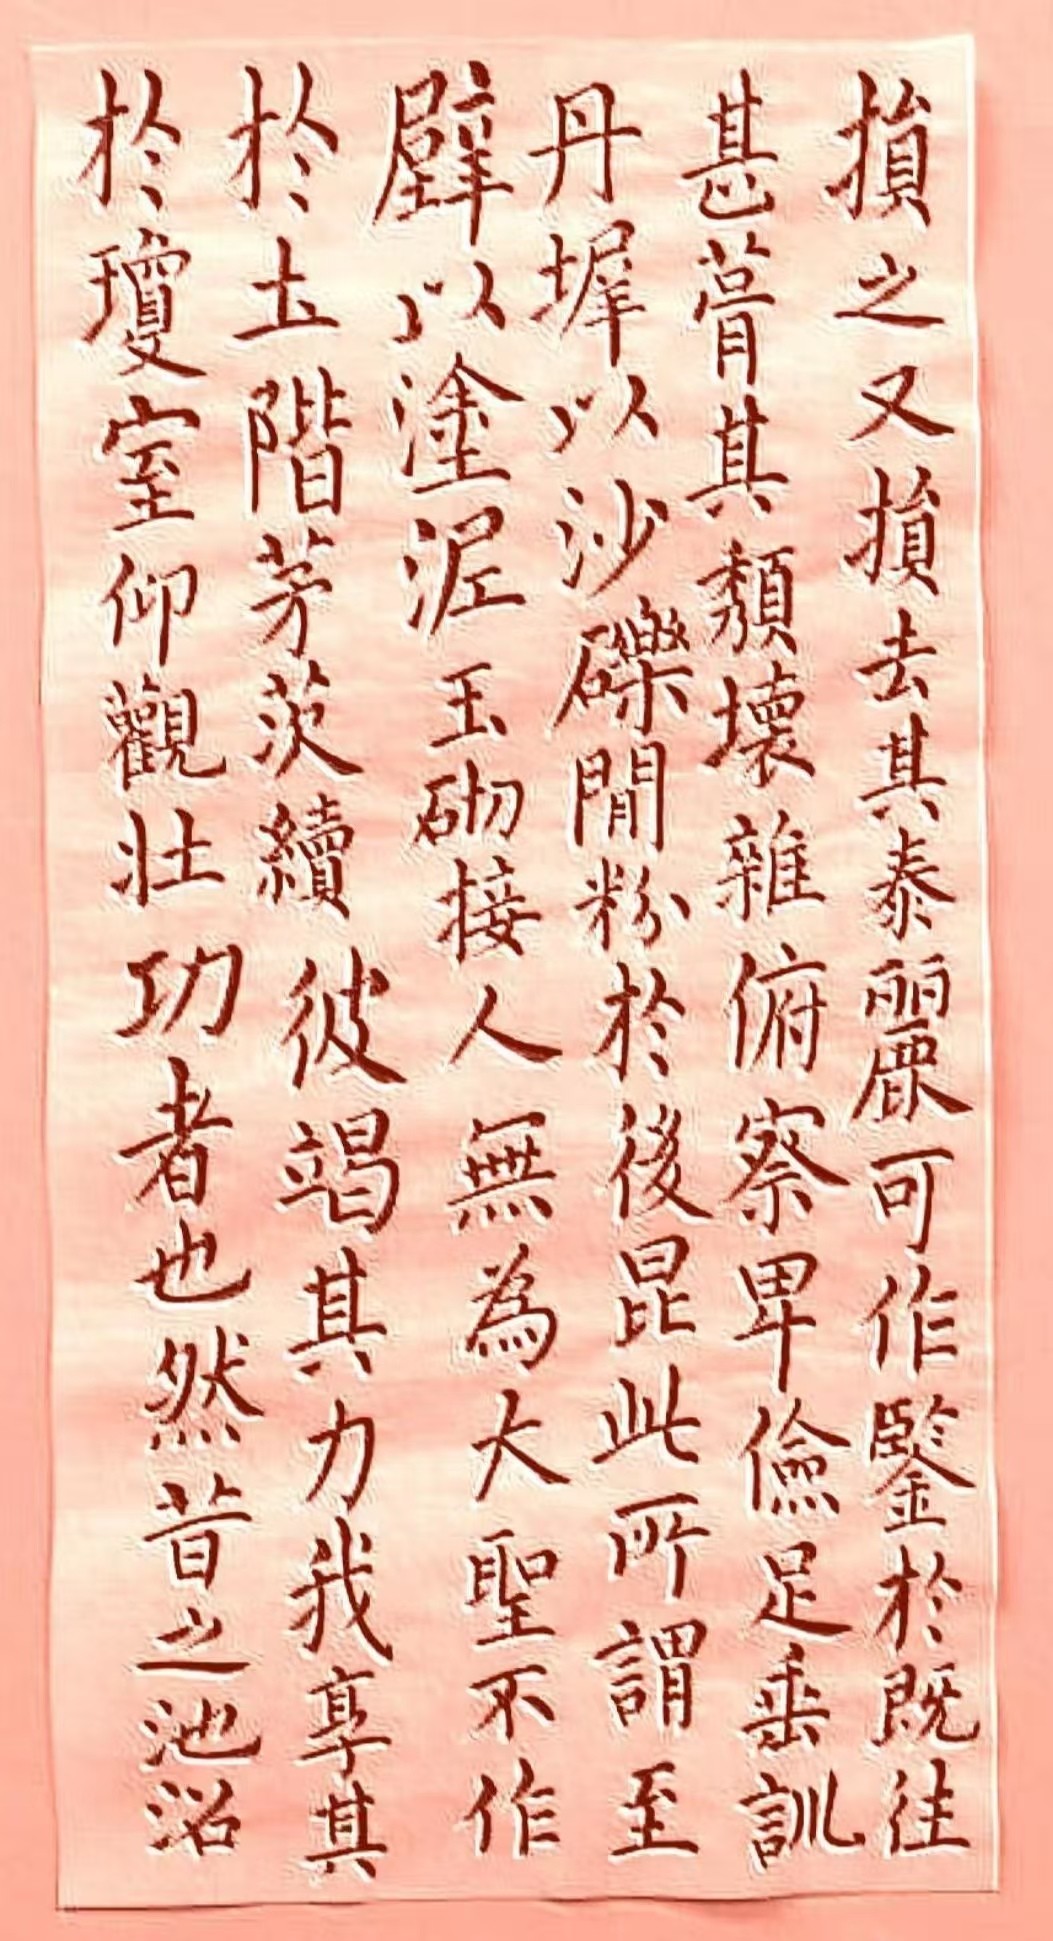 損之又損去其泰麗可作鑒於既往
甚葺其頹壞雜俯察卑儉足垂訓
丹墀以沙礫閒粉於後昆此所謂至
壁以塗泥玉砌接人無為大聖不作
於土階茅茨續彼竭其力我享其
於瓊室仰觀壯功者也然昔之池沼